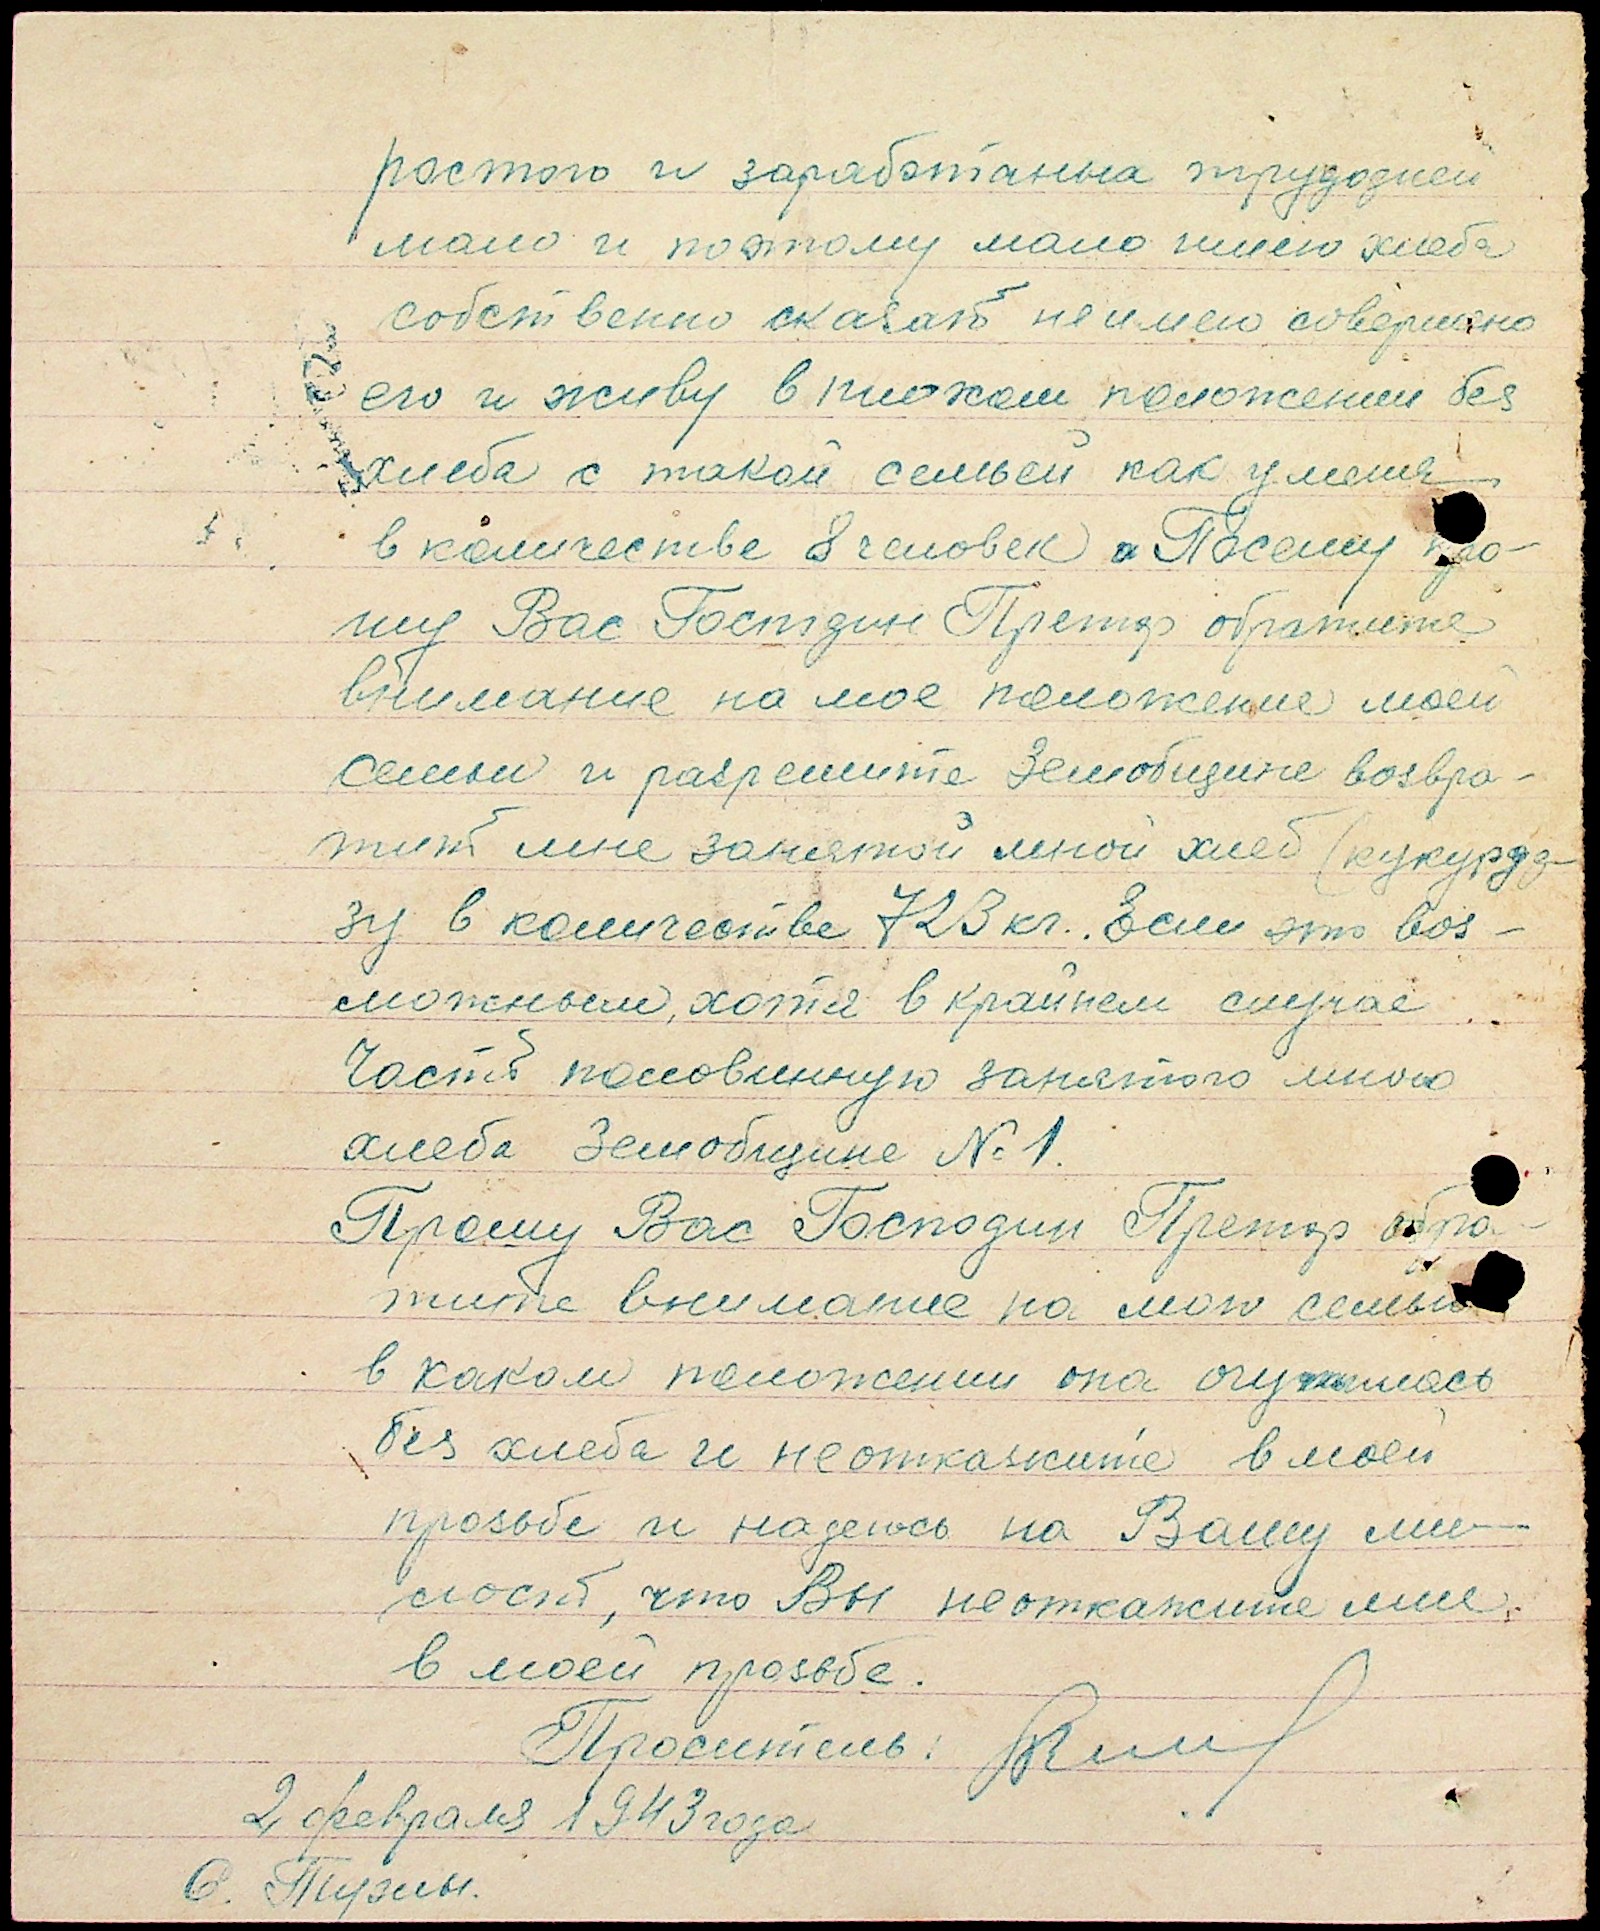 ростого и заработанна трудодней
мало и поэтому мало имею хлеба
собственно сказать неимею совершено
его и живу в плохом положении без
хлеба с такой семьей как у меня
в количестве 8 человек и Посему про-
шу Вас Господин Претор обратите
внимание на мое положение моей
семьи и разрешите Земобщине возвра-
тить мне занятой мной хлеб (кукуруд-
зу в количестве 723 кг.. Если это воз-
можным, хотя в крайнем случае
Часть половинную занятого мною
хлеба Земобщине № 1.
Прошу Вас Господин Претор обра-
тите внимание на мою семью
в каком положении она очутилась
без хлеба и неоткажите в моей
прозьбе и надеюсь на Вашу ми-
лость, что Вы неоткажите мне
в моей прозьбе.
Проситель:
2 февраля 1943 года
С. Тужлы.